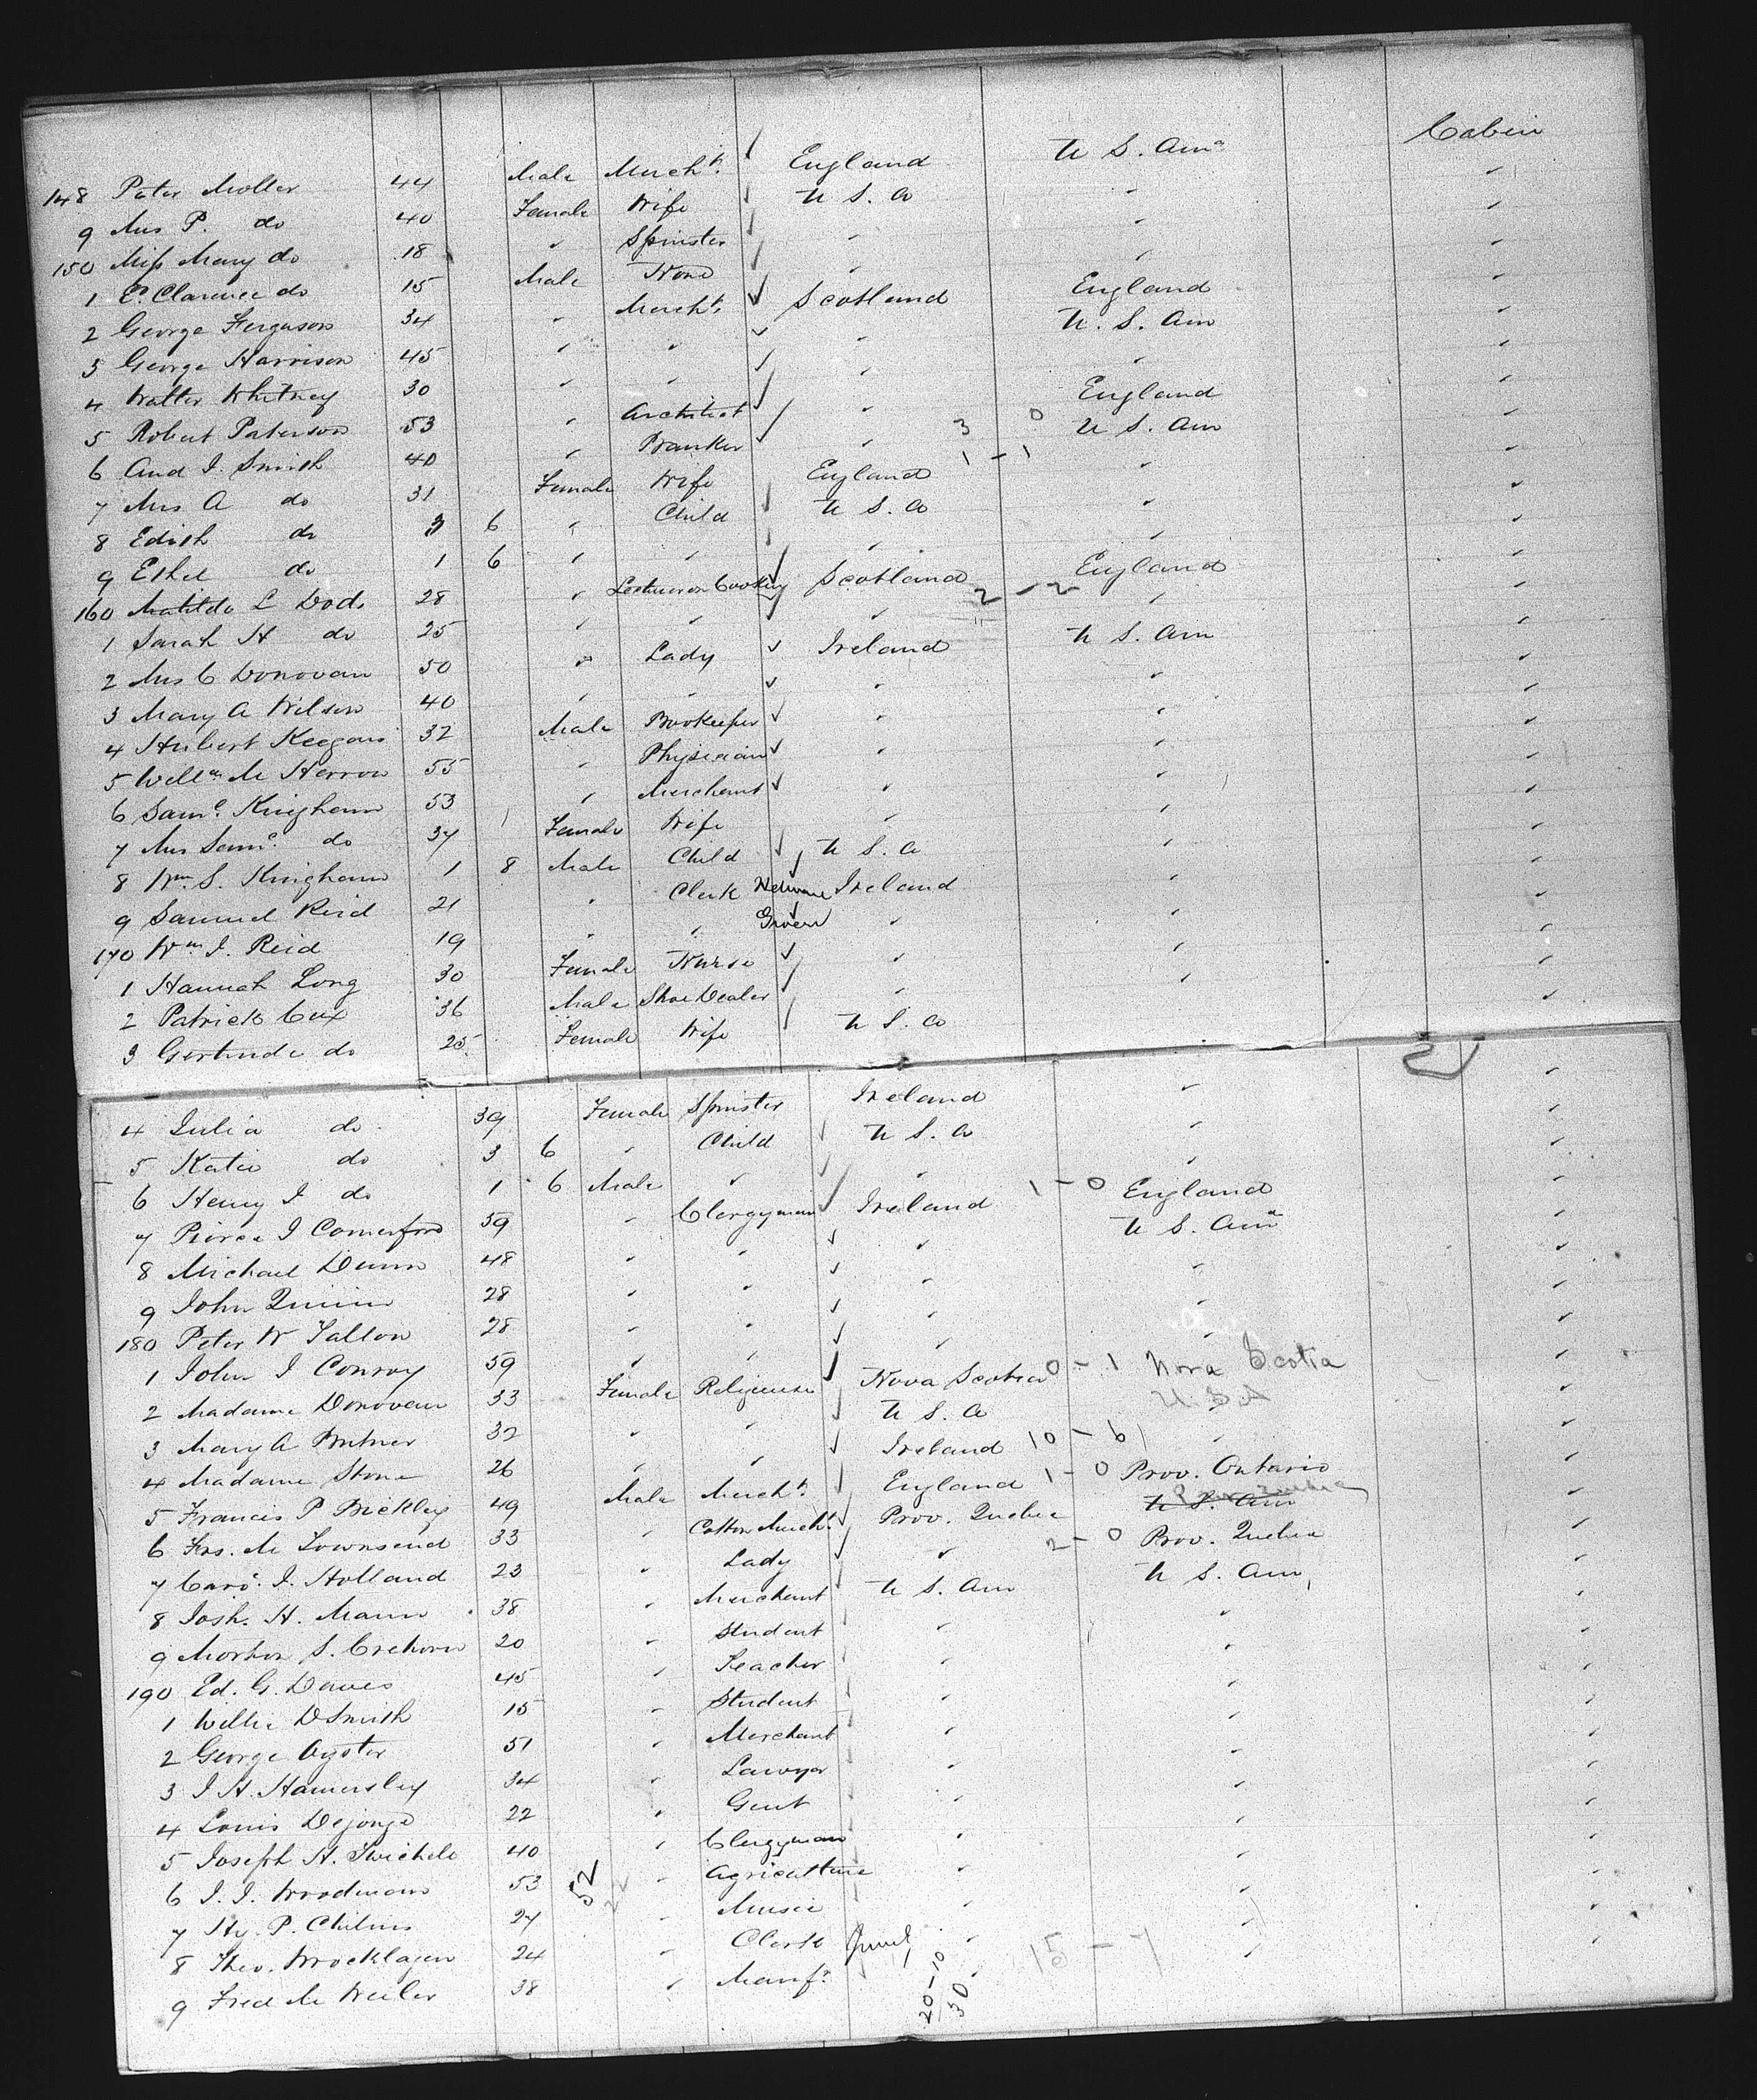 Cabin
148 Peter Moller 44 Male Mercht. England U S. Ama
9 Mrs P. do 40 Female Wife U S. A "
150 Miss Mary do 18 " Spinster " "
1 E. Clarence do 15 Male None " "
2 George Ferguson 34 " Mercht. Scotland England
3 George Harrison 45 " " " U. S. Am
4 Walter Whitney 30 " " " "
5 Robert Paterson 53 " Architect " England
6 And J. Smith 40 " Banker " 3 0 U S. Am
7 Mrs A do 31 Female Wife England 1 - 1 "
8 Edith do 3 6 " Child U S. A "
9 Ethel do 1 6 " " " "
160 Matilda L Dods 28 " Lecturer on Cookery Scotland England
1 Sarah H do 25 " " " 2 - 2 "
2 Mrs C Donovan 50 " Lady Ireland U S. Am
3 Mary A Wilson 40 " " " "
4 Hubert Keegan 32 Male Bookeeper " "
5 Willm Mc Herron 55 " Physician " "
6 Saml. Kingham 53 " Merchant " "
7 Mrs Saml. do 37 Female Wife " "
8 Wm. S. Kingham 1 8 Male Child U S. A "
9 Samuel Reid 21 " Clerk Ireland "
170 Wm J. Reid 19 " " " "
1 Hannah Long 30 Female Nurse " "
2 Patrick Cux 36 Male Shoe Dealer " "
3 Gertrude do 25 Female Wife U S. A "
4 Julia do 39 Female Spinster Ireland "
5 Katie do 3 6 " Child U S. A "
6 Henry J do 1 6 Male " " "
7 Pierce J Comerford 59 " Clergyman Ireland 1 - 0 England
8 Michael Dunn 48 " " " U S. Ama
9 John Quinn 28 " " " "
180 Peter W Tallon 28 " " " "
1 John J Conroy 59 " " " "
2 Madame Donovan 33 Female Religieuse Nova Scotia 0 - 1 Nova Scotia
U. S A
3 Mary A Butner 32 " " U S. A "
4 Madame Stone 26 " " Ireland 10 - 6 "
5 Francis P Bickley 49 Male Mercht. England 1 - 0 Prov. Ontario
6 Frs. M Townsend 33 " Cotton Mercht. Prov. Quebec U S. Am
7 Caro. J. Holland 23 " Lady " 2 - 0 Prov. Quebec
8 Josh. H. Mann 38 " Merchant U S. Am U S. Am
9 Morton S. Crehore 20 " Student " "
190 Ed. G. Daves 45 " Teacher " "
1 Willie D Smith 15 " Student " "
2 George Oyster 51 " Merchant " "
3 J H. Hamersley 34 " Lawyer " "
4 Louis Dejonge 22 " Gent " "
5 Joseph H. Twichell 40 " Clergyman " "
6 J. J. Woodman 53 52 " Agriculture " "
7 Hy. P. Chelius 27 " Music " "
8 Theo. Wocklagen 24 " Clerk " 15 - 7 "
9 Fred M Weiler 38 " Manfr. 20-10 30 "